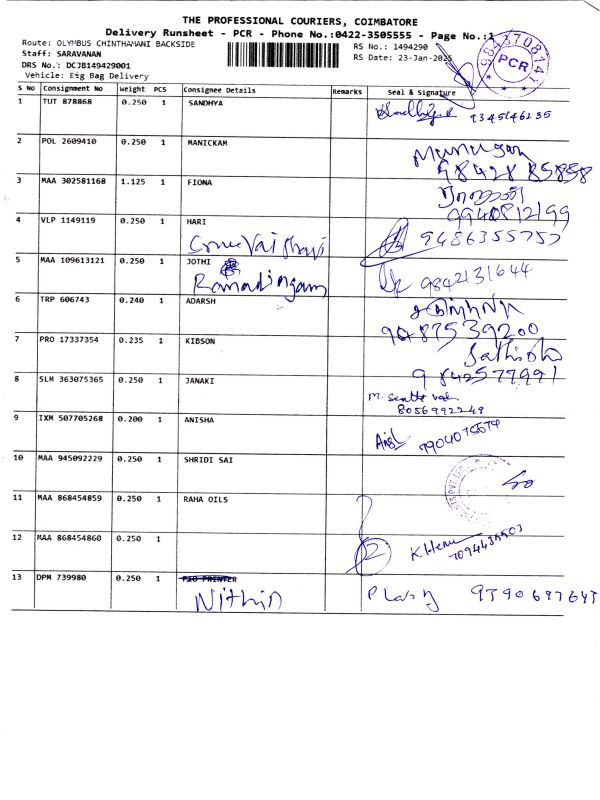 THE PROFESSIONAL COURIERS, COIMBATORE
Delivery Runsheet - PCR - Phone No.:0422-3505555 - Page No.:1
Route: OLYMBUS CHINTHAMANI BACKSIDE
RS No.: 1494290
Staff: SARAVANAN
RS Date: 23-Jan-2025
DRS No.: DCJB149429001
Vehicle: Big Bag Delivery
9843708141
PCR
S No Consignment No Weight PCS Consignee Details Remarks Seal & Signature
1 TUT 878868 0.250 1 SANDHYA
9345146235
2 POL 2609410 0.250 1 MANICKAM
Murugan
98428 85858
3 MAA 302581168 1.125 1 FIONA
9940812199
4 VLP 1149119 0.250 1 HARI
9486355757
5 MAA 109613121 0.250 1 JOTHI
Ramalingam
9842131644
6 TRP 606743 0.240 1 ADARSH
9487539200
7 PRO 17337354 0.235 1 KIBSON
Sathish
9842577991
8 SLM 363075365 0.250 1 JANAKI
8056992249
9 IXM 507705268 0.200 1 ANISHA
10 MAA 945092229 0.250 1 SHRIDI SAI
11 MAA 868454859 0.250 1 RAHA OILS
12 MAA 868454860 0.250 1
2
13 DPM 739980 0.250 1 PIO PRINTER
Nithin